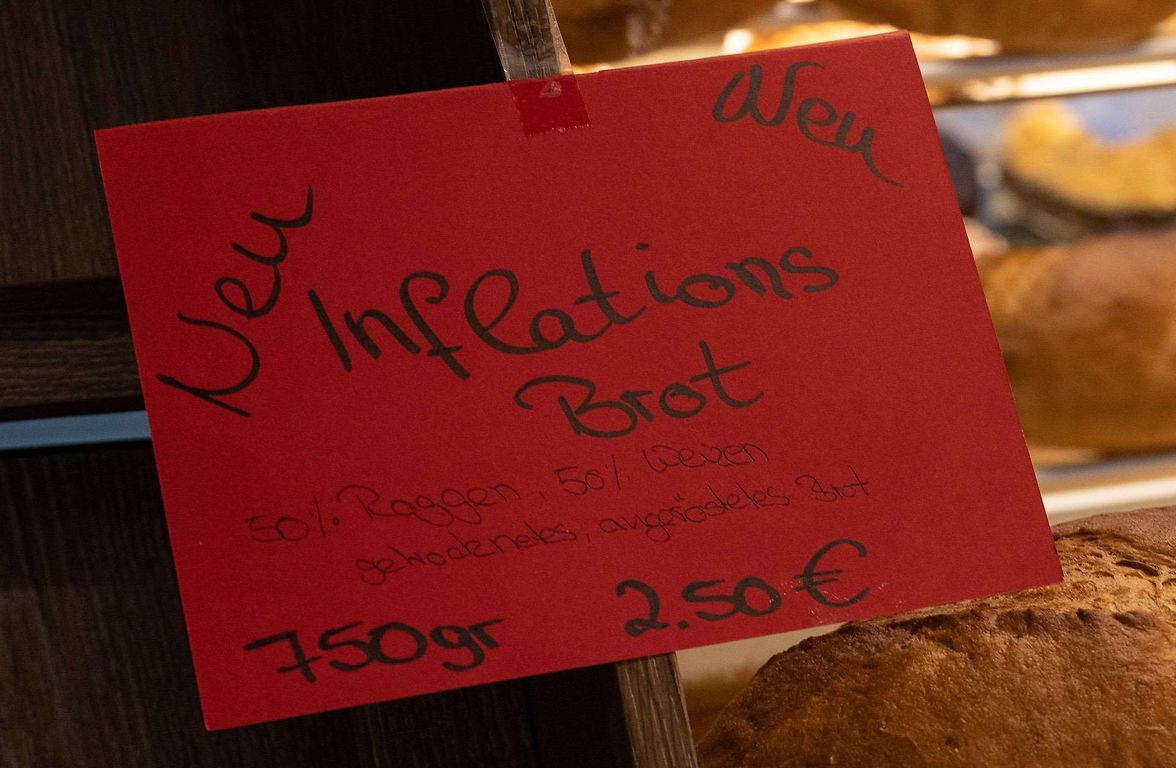 Neu
Neu
Inflations
Brot
50% Roggen, 50% Weizen
getrocknetes, angeröstetes Brot
750gr 2.50€